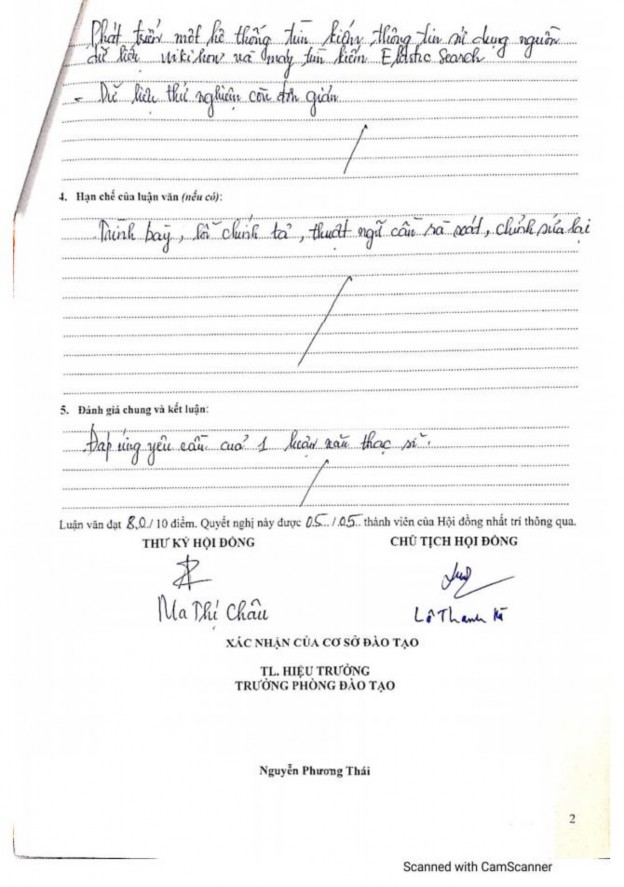 Phát triển một hệ thống tìm kiếm thông tin sử dụng nguồn
dữ liệu wikihow và máy tìm kiếm Elastic Search
- Dữ liệu thử nghiệm còn đơn giản
4. Hạn chế của luận văn (nếu có):
Trình bày, lỗi chính tả, thuật ngữ cần rà soát, chỉnh sửa lại
5. Đánh giá chung và kết luận:
Đáp ứng yêu cầu cuả 1 luận văn thạc sĩ.
Luận văn đạt 8,0./ 10 điểm. Quyết nghị này được 05../.05.. thành viên của Hội đồng nhất trí thông qua.
THƯ KÝ HỘI ĐỒNG
CHỦ TỊCH HỘI ĐỒNG
Ma Thị Châu
Lê Thanh Hà
XÁC NHẬN CỦA CƠ SỞ ĐÀO TẠO
TL. HIỆU TRƯỞNG
TRƯỞNG PHÒNG ĐÀO TẠO
Nguyễn Phương Thái
2
Scanned with CamScanner